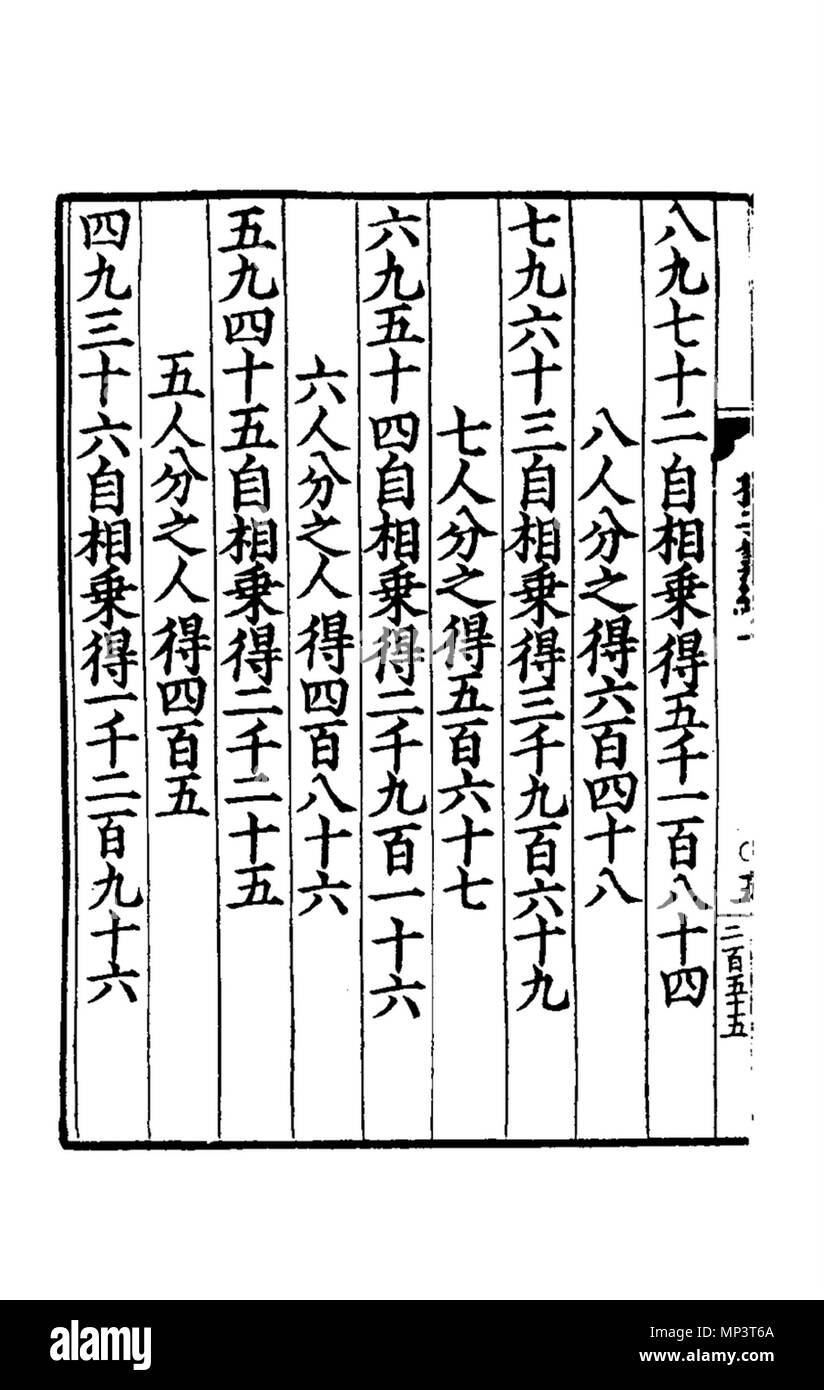 二百五十五
八九七十二自相乗得五千一百八十四
八人分之得六百四十八
七九六十三自相乗得三千九百六十九
七人分之得五百六十七
六九五十四自相乗得二千九百一十六
六人分之人得四百八十六
五九四十五自相乗得二千二十五
五人分之人得四百五
四九三十六自相乗得一千二百九十六
alamy
Image ID: MP3T6A
www.alamy.com